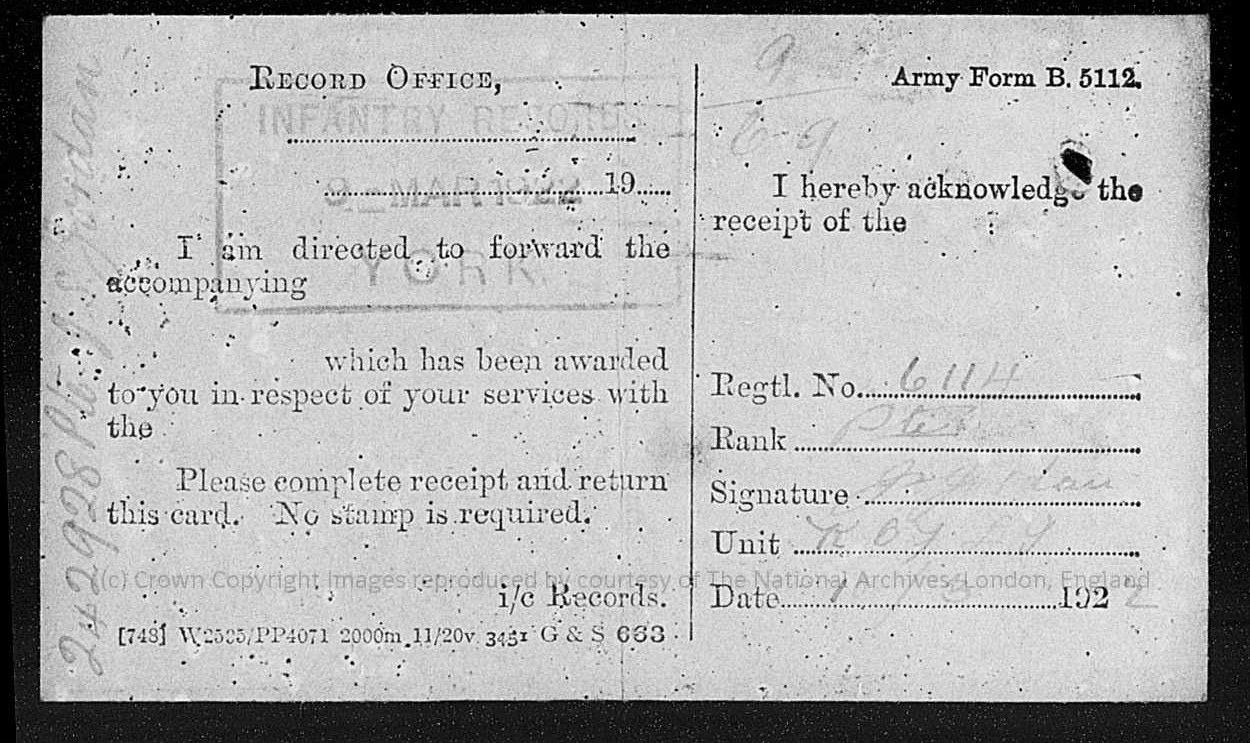 RECORD OFFICE,
INFANTRY RECORDS
19
9 - MAR 1922
I am directed to forward the
YORK.
accompanying
which has been awarded
to you in respect of your services with
the
Please complete receipt and return
this card. No stamp is required.
i/c Records.
[748] W2535/PP4071 2000m 11/20v 3451 G & S 663
242928 Pte J. S. Jordan
9
Army Form B. 5112.
I hereby acknowledge the
receipt of the
Regtl. No. 6114
Rank Pte
Signature Jordan
Unit
Date 1922
(c) Crown Copyright Images reproduced by courtesy of The National Archives, London, England